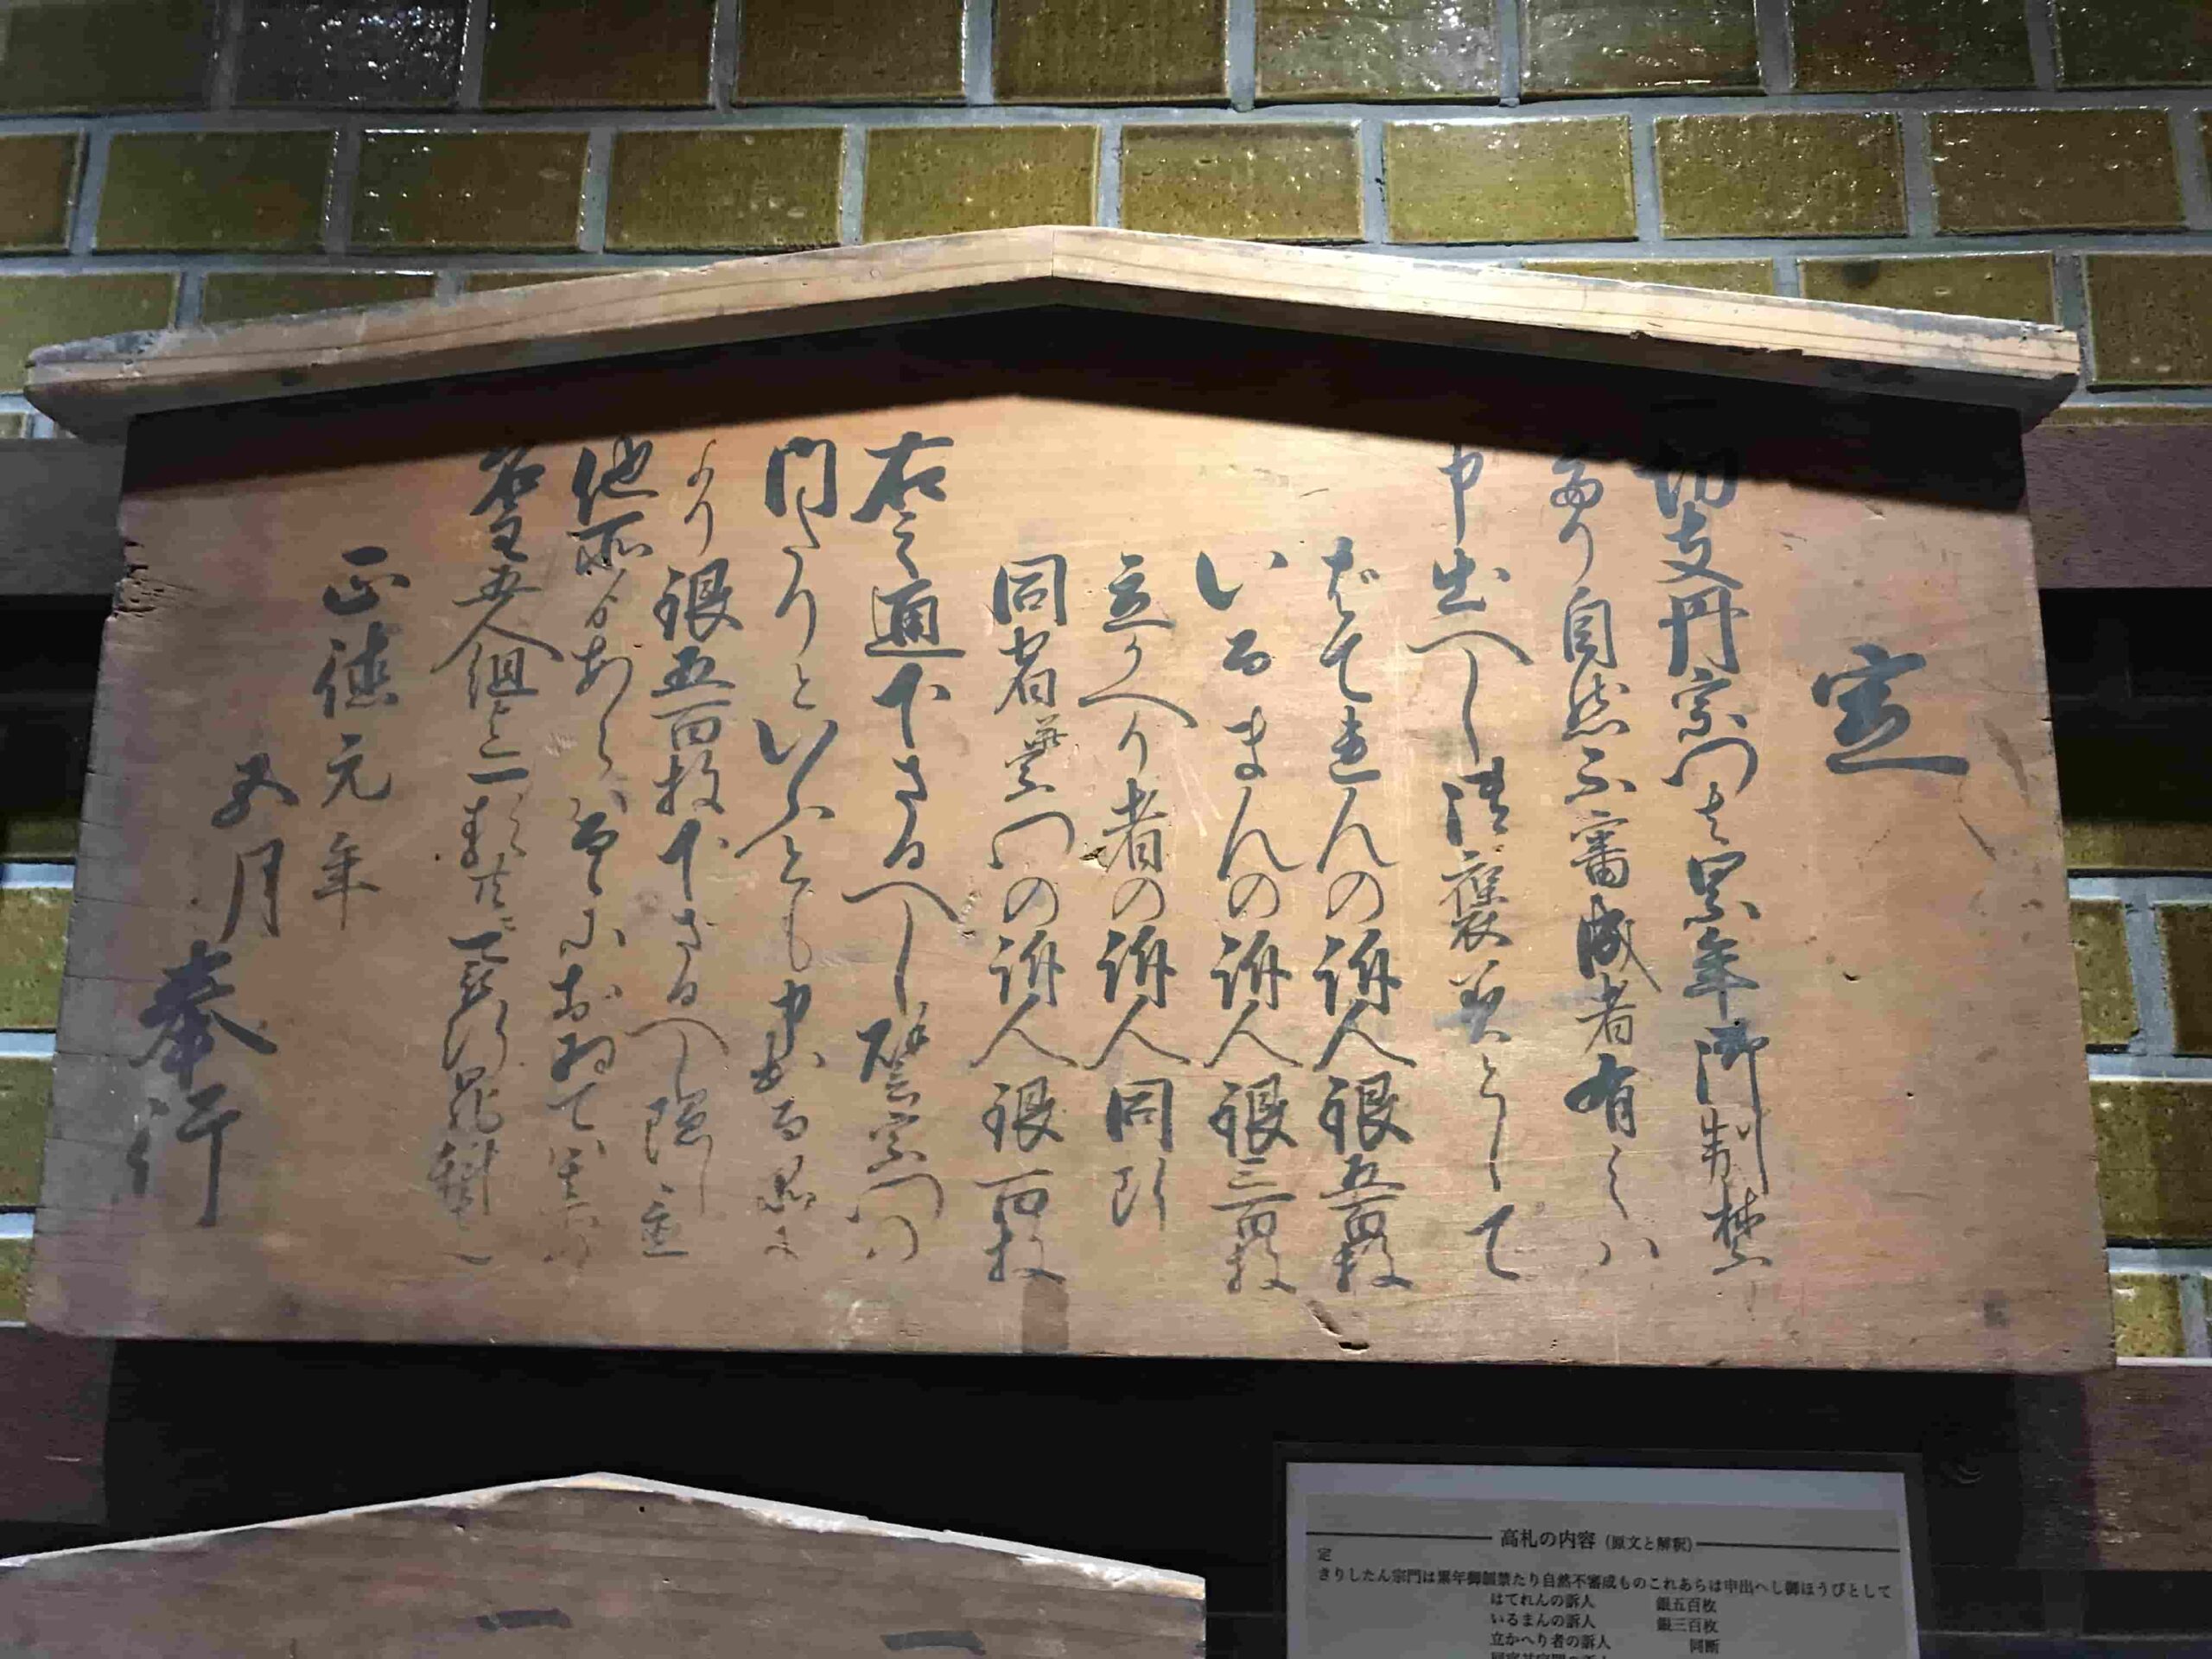 定
切支丹宗門者累年御制禁
たり自然不審成者有之ハ
申出へし御褒美として
ばてれんの訴人銀五百枚
いるまんの訴人銀三百枚
立かへり者の訴人同断
同宿者并宗門の訴人銀百枚
右之通下さるへし譬宗門の
門たりといふとも申出る品に
より銀五百枚下さるへし隠し置
他所よりあらはるゝにおゐてハ其所の
名主五人組迄一類共ニ可被行罪科者也
正徳元年
五月
奉行
一
一
高札の内容(原文と解釈)
定
きりしたん宗門は累年御制禁たり自然不審成ものこれあらは申出へし御ほうびとして
はてれんの訴人 銀五百枚
いるまんの訴人 銀三百枚
立かへり者の訴人 同断